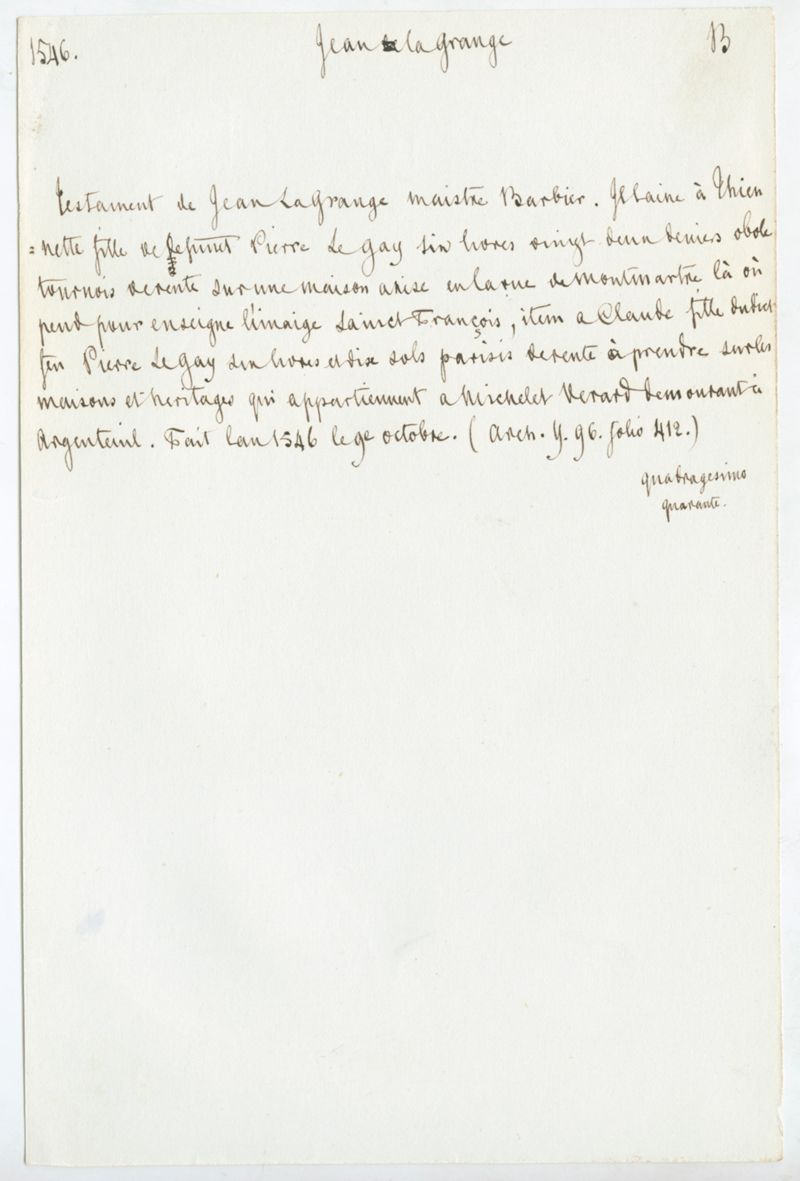 1546. Jean de la Grange B
Testament de Jean LaGrange maistre Barbier. Il laine à Thien
=nette fille de defunct Pierre Le Gay six livres vingt deux deniers obole
tournois de rente sur une maison assise en la rue de Montmartre là où
pend pour enseigne l'imaige Sainct François, item a Claude fille dudict
feu Pierre Le Gay six livres et dix sols parisis de rente à prendre sur les
maisons et heritages qui appartiennent a Michelet Verard demourant à
Argenteuil. Fait l'an 1546 le 9e octobre. (Arch. Y. 96. folio 412.)
quadragesimo
quarante.